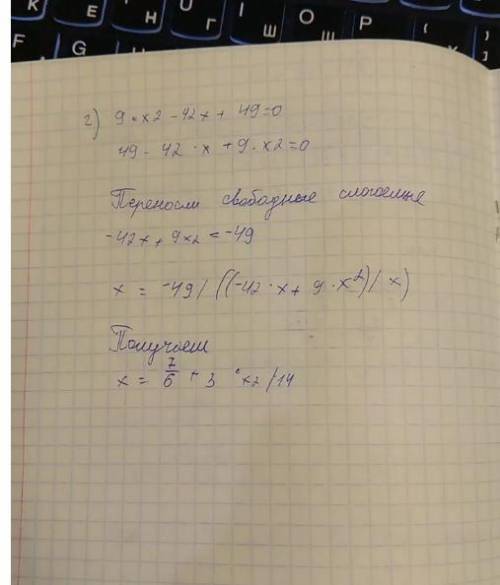 К Е Н Г Ш О Р (
F G І Ш К ]
г) 9·x2-42x+ 49=0
49- 42·x+9·x2=0
Переносим свободные слагаемые
-42x+9x2=-49
x = -49/((-42·x+9·x²)/x)
Получаем
x = 7/6 + 3·x2/14